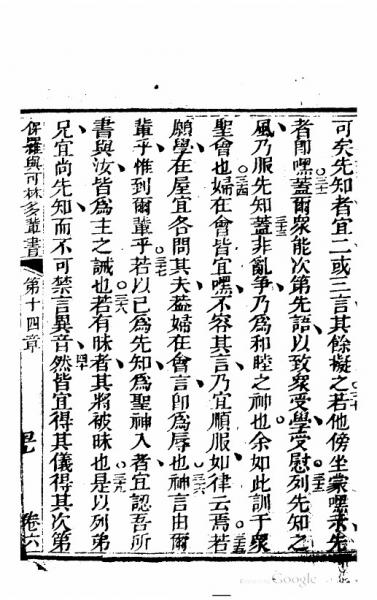 可矣先知者宜二或三言其餘擬之若他傍坐蒙嘿未先
者卽嘿蓋爾衆能次第先語以致衆受學受慰列先知之
風乃服先知蓋非亂爭乃為和睦之神也余如此訓于衆
聖會也婦在會皆宜嘿不容其言乃宜順服如律云焉若
願學在屋宜各問其夫蓋婦在會言卽為辱也神言由爾
輩乎惟到爾輩乎若以已為先知為聖神入者宜認吾所
書與汝皆為主之誡也若有昧者其將被昧也是以列弟
兄宜尚先知而不可禁言異音然皆宜得其儀得其次第
保羅與可林多輩書 第十四章 卷六
三十
三一
三二
三三
三四
三五
三六
三七
三八
三九
四十
Google